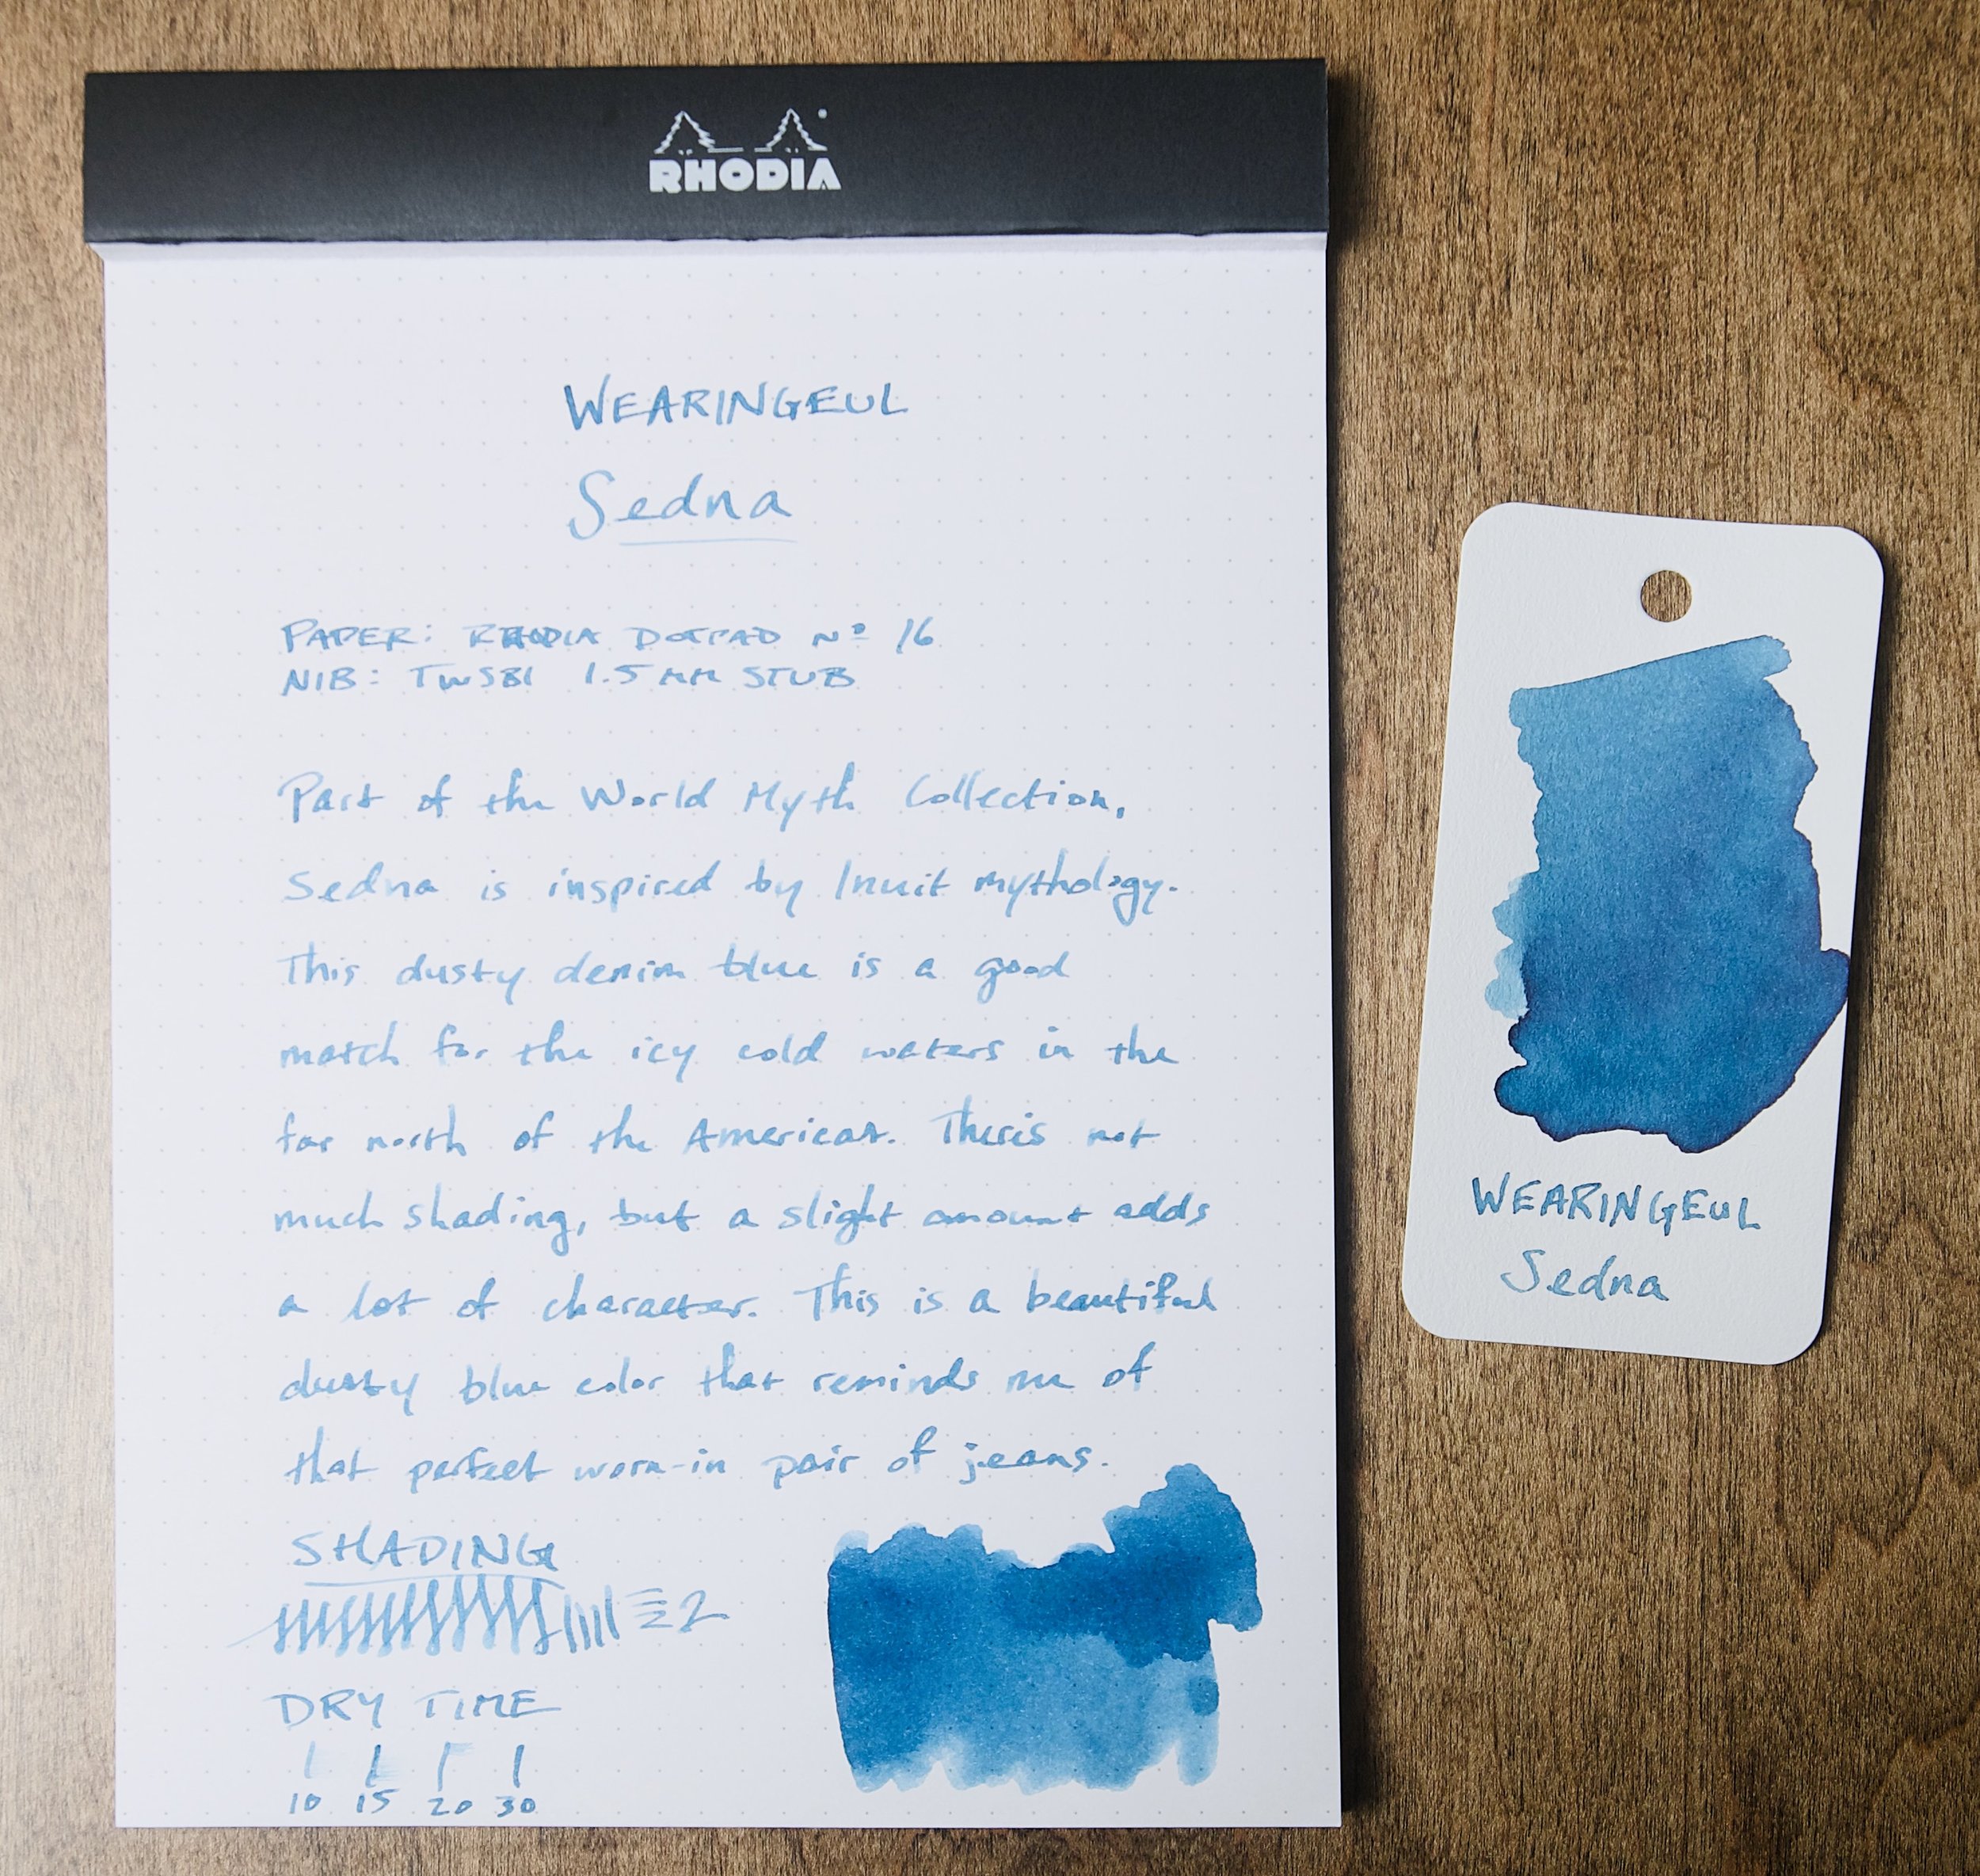 RHODIA
WEARINGEUL
Sedna
PAPER: RHODIA DOTPAD Nº 16
NIB: TWSBI 1.5 MM STUB
Part of the World Myth Collection,
Sedna is inspired by Inuit mythology.
This dusty denim blue is a good
match for the icy cold waters in the
far north of the Americas. Theris not
much shading, but a slight amount adds
a lot of character. This is a beautiful
dusty blue color that reminds me of
that perfect worn-in pair of jeans.
SHADING
DRY TIME
10 15 20 30
WEARINGEUL
Sedna